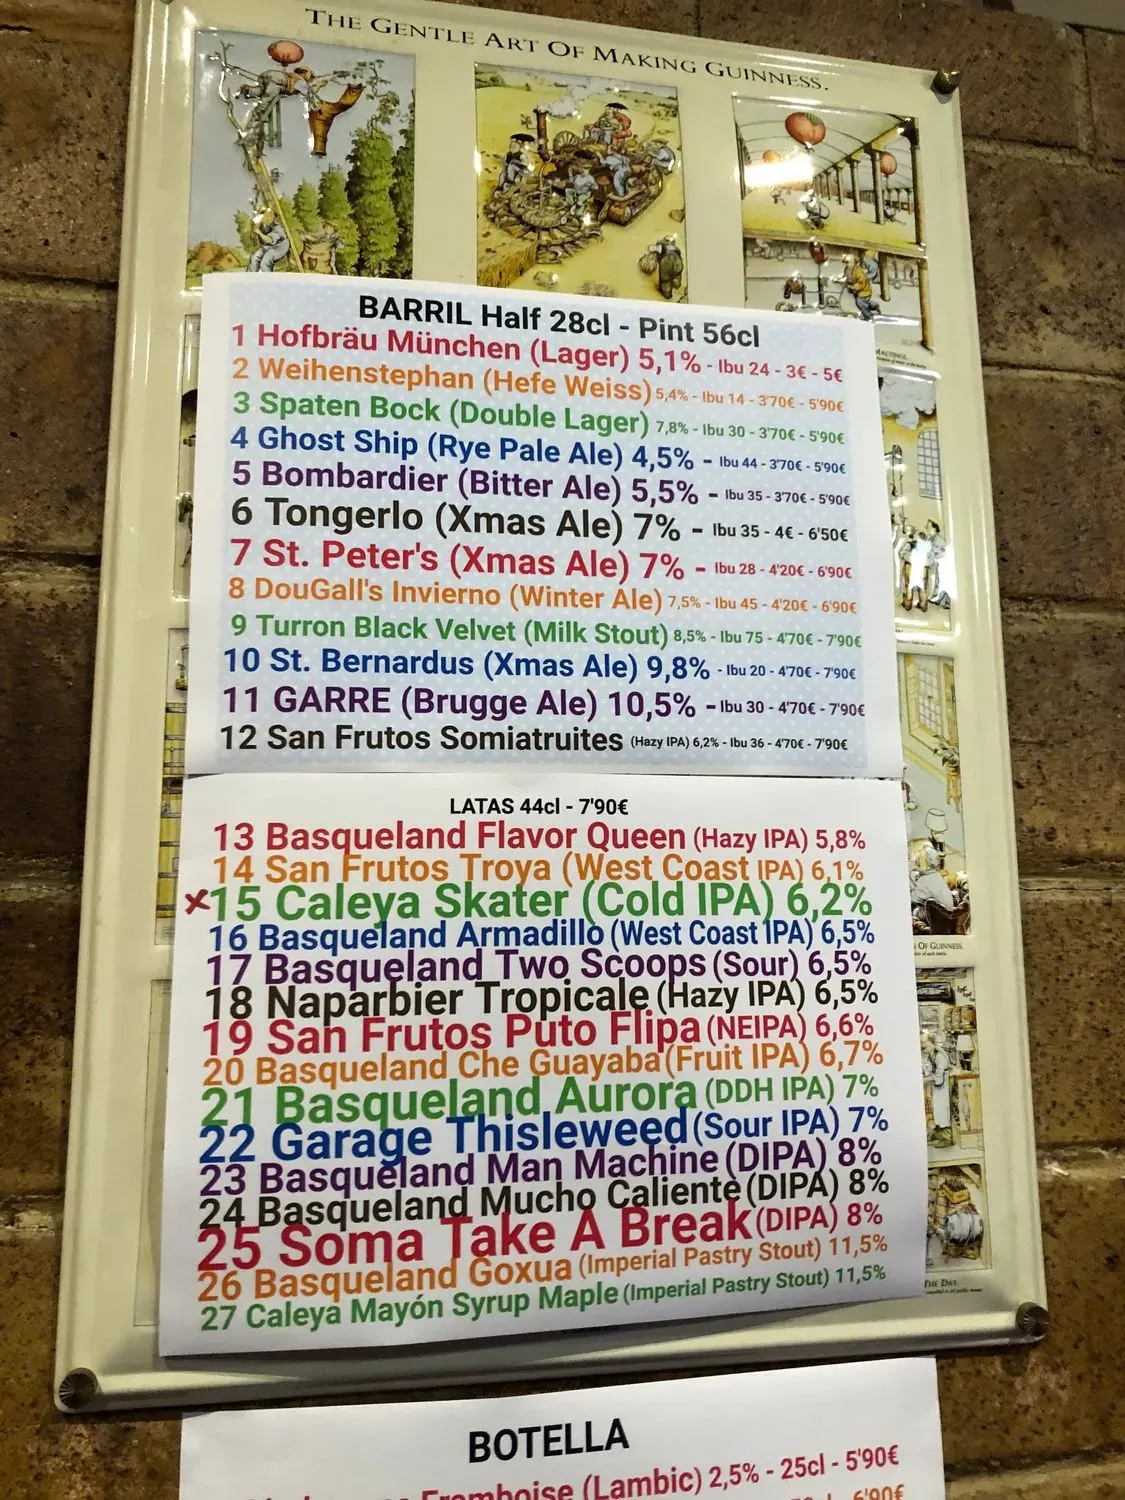 THE GENTLE ART OF MAKING GUINNESS.
BARRIL Half 28cl - Pint 56cl
1 Hofbräu München (Lager) 5,1% - Ibu 24 - 3€ - 5€
2 Weihenstephan (Hefe Weiss) 5,4% - Ibu 14 - 3'70€ - 5'90€
3 Spaten Bock (Double Lager) 7,8% - Ibu 30 - 3'70€ - 5'90€
4 Ghost Ship (Rye Pale Ale) 4,5% - Ibu 44 - 3'70€ - 5'90€
5 Bombardier (Bitter Ale) 5,5% - Ibu 35 - 3'70€ - 5'90€
6 Tongerlo (Xmas Ale) 7% - Ibu 35 - 4€ - 6'50€
7 St. Peter's (Xmas Ale) 7% - Ibu 28 - 4'20€ - 6'90€
8 DouGall's Invierno (Winter Ale) 7,5% - Ibu 45 - 4'20€ - 6'90€
9 Turron Black Velvet (Milk Stout) 8,5% - Ibu 75 - 4'70€ - 7'90€
10 St. Bernardus (Xmas Ale) 9,8% - Ibu 20 - 4'70€ - 7'90€
11 GARRE (Brugge Ale) 10,5% - Ibu 30 - 4'70€ - 7'90€
12 San Frutos Somiatruites (Hazy IPA) 6,2% - Ibu 36 - 4'70€ - 7'90€
LATAS 44cl - 7'90€
13 Basqueland Flavor Queen (Hazy IPA) 5,8%
14 San Frutos Troya (West Coast IPA) 6,1%
x15 Caleya Skater (Cold IPA) 6,2%
16 Basqueland Armadillo (West Coast IPA) 6,5%
17 Basqueland Two Scoops (Sour) 6,5%
18 Naparbier Tropicale (Hazy IPA) 6,5%
19 San Frutos Puto Flipa (NEIPA) 6,6%
20 Basqueland Che Guayaba (Fruit IPA) 6,7%
21 Basqueland Aurora (DDH IPA) 7%
22 Garage Thisleweed (Sour IPA) 7%
23 Basqueland Man Machine (DIPA) 8%
24 Basqueland Mucho Caliente (DIPA) 8%
25 Soma Take A Break (DIPA) 8%
26 Basqueland Goxua (Imperial Pastry Stout) 11,5%
27 Caleya Mayón Syrup Maple (Imperial Pastry Stout) 11,5%
OF GUINNESS.
THE DAY.
BOTELLA
Framboise (Lambic) 2,5% - 25cl - 5'90€
6'90€